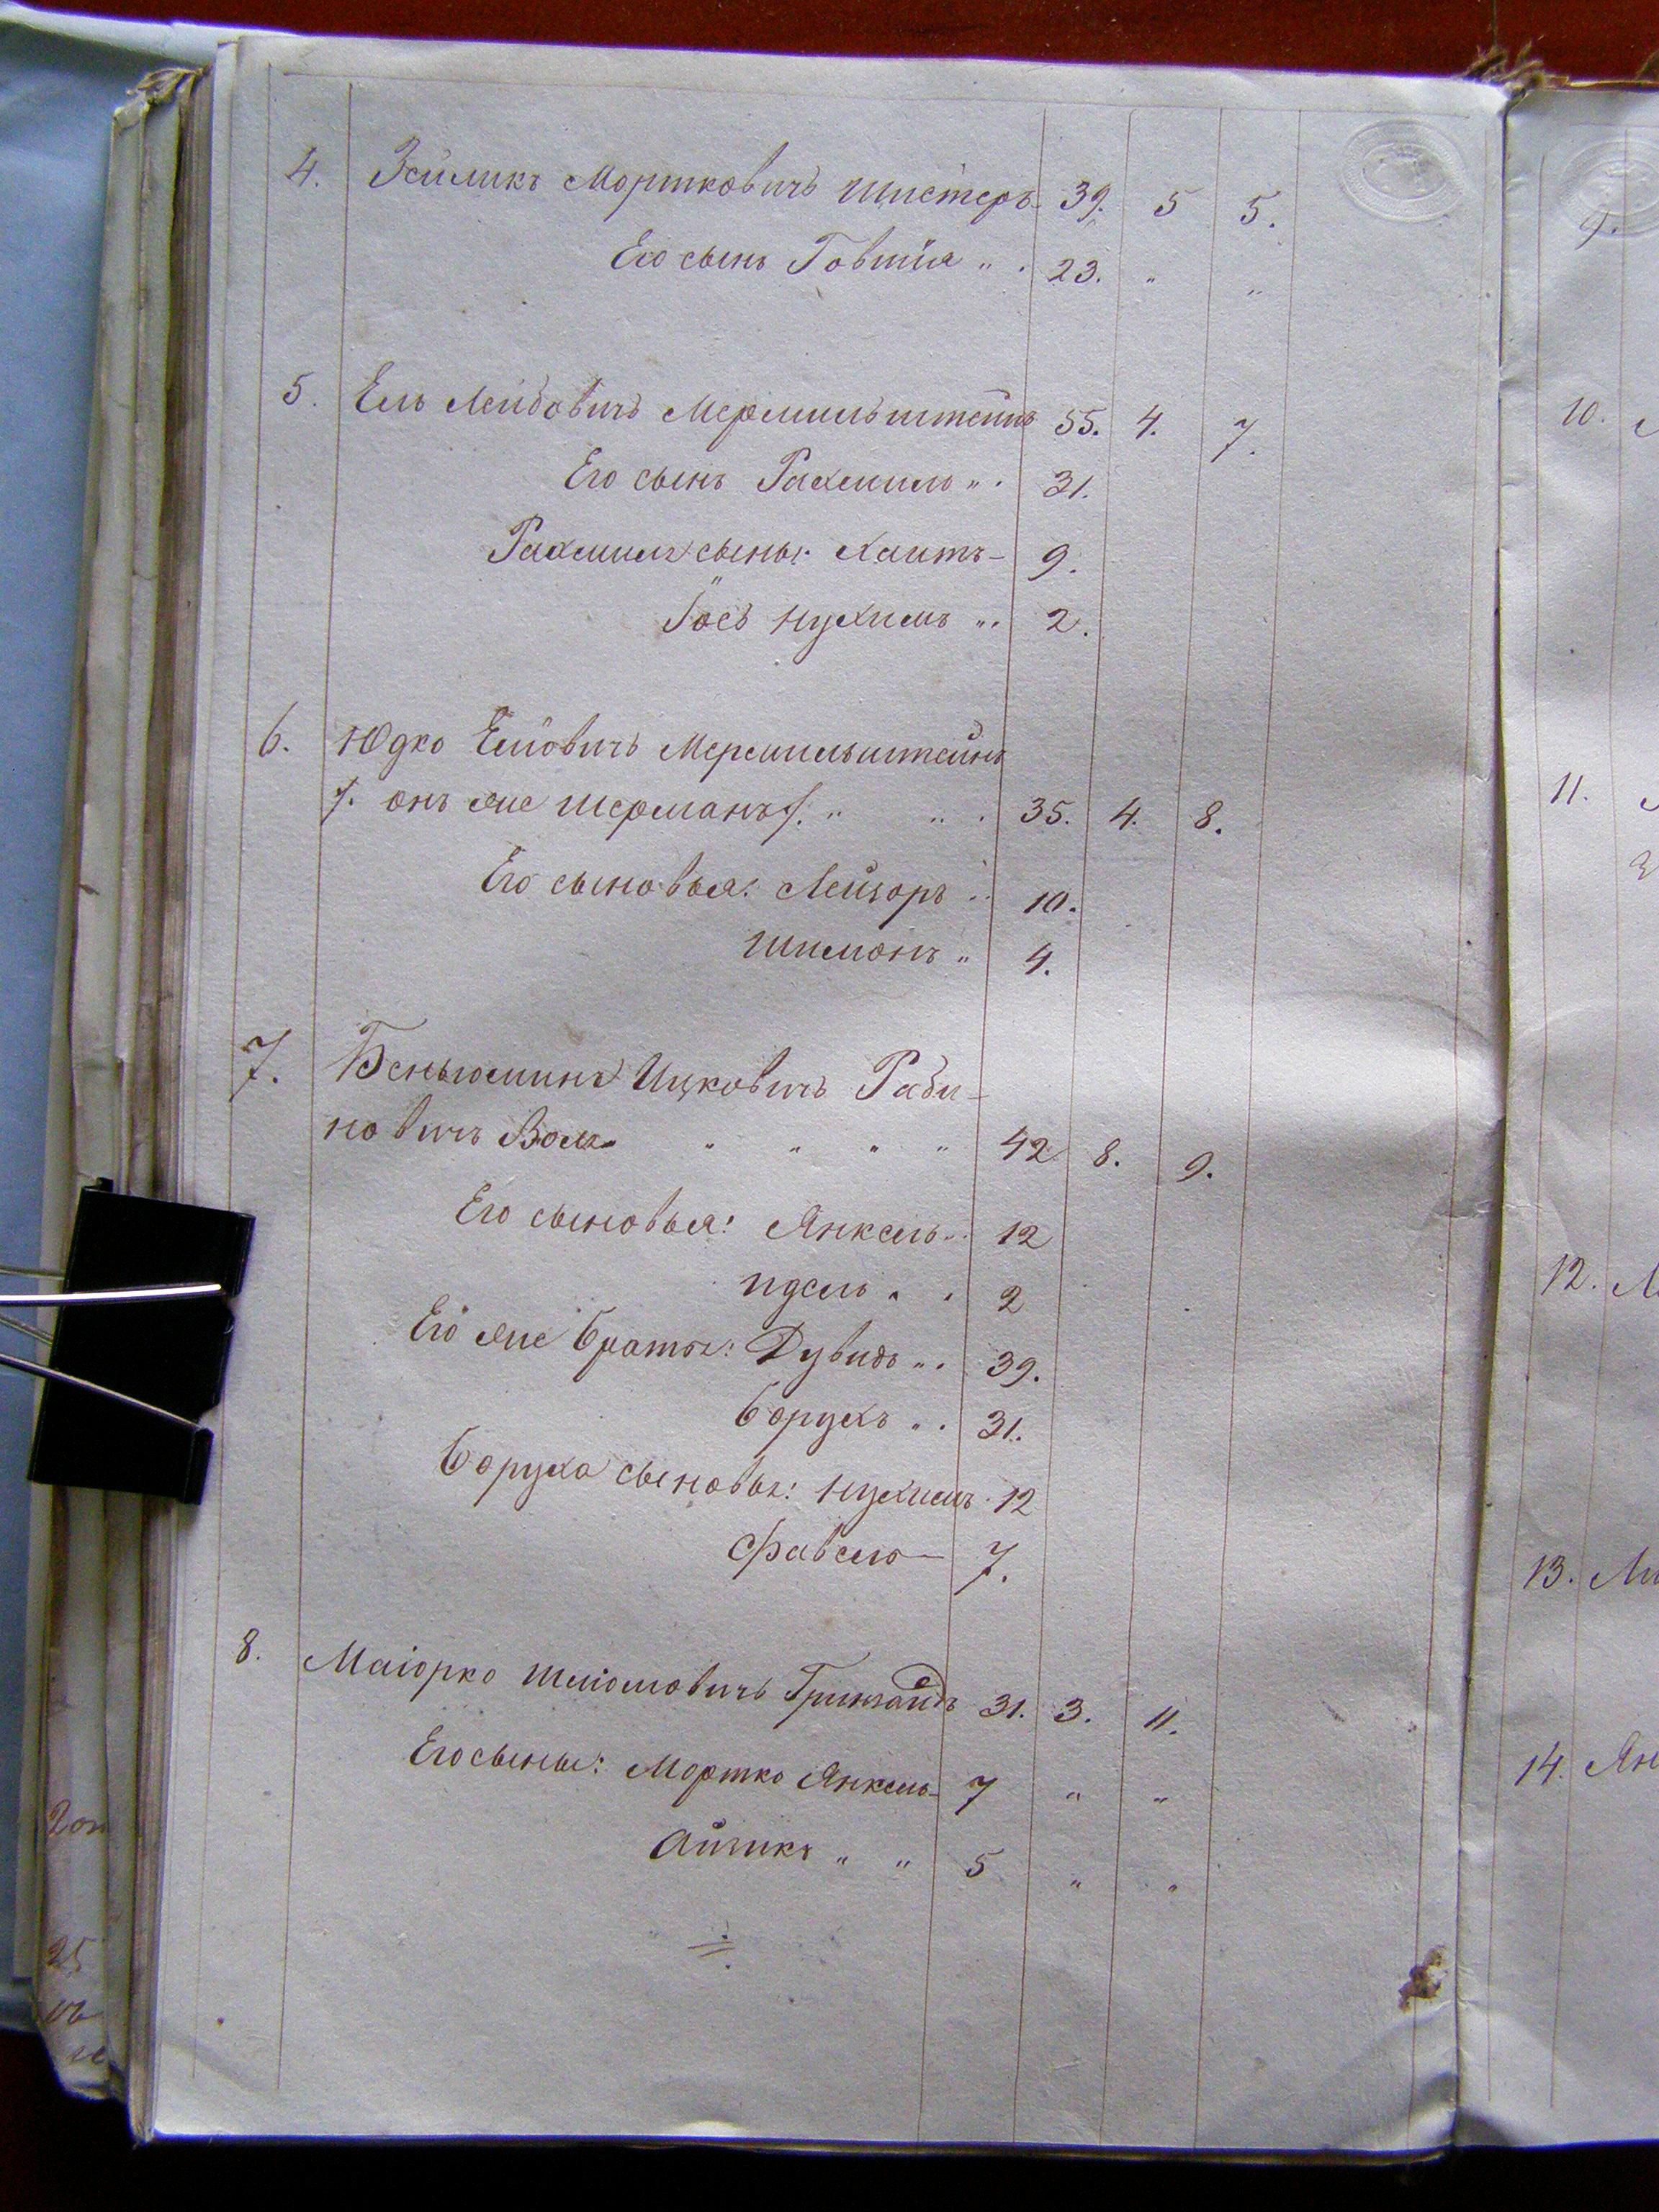 4. Зейликъ Мортковичъ Шистеръ 39. 5 5.
Его сынъ Говшія „ . 23. „ „
5. Ель Лейбовичъ Мермильштейнъ 55. 4. 7.
Его сынъ Рахмиль „ . 31.
Рахмиля сыны: Хаимъ - 9.
Іосъ Нухимъ „ . 2.
6. Юдко Еліовичъ Мермильштейнъ
/. онъ же Шерманъ /. „ „ . 35. 4. 8.
Его сыновья: Лейзоръ . . 10.
Шимонъ „ 4.
7. Беньюминъ Ицковичъ Раби-
новичъ Волк „ „ „ „ 42 8. 9.
Его сыновья: Янкель . . 12
Идель „ . 2
Его же братья: Дувидъ „ . 39.
Борухъ . . 31.
Боруха сыновья: Нухимъ . 12
Файвель - 7.
8. Маіорко Шліомовичъ Гринзайдъ 31. 3. 11.
Его сыны: Мортко Янкель - 7 „ „
Айзикъ „ „ 5 „ „
9.
10.
11.
12.
13.
14. Ян